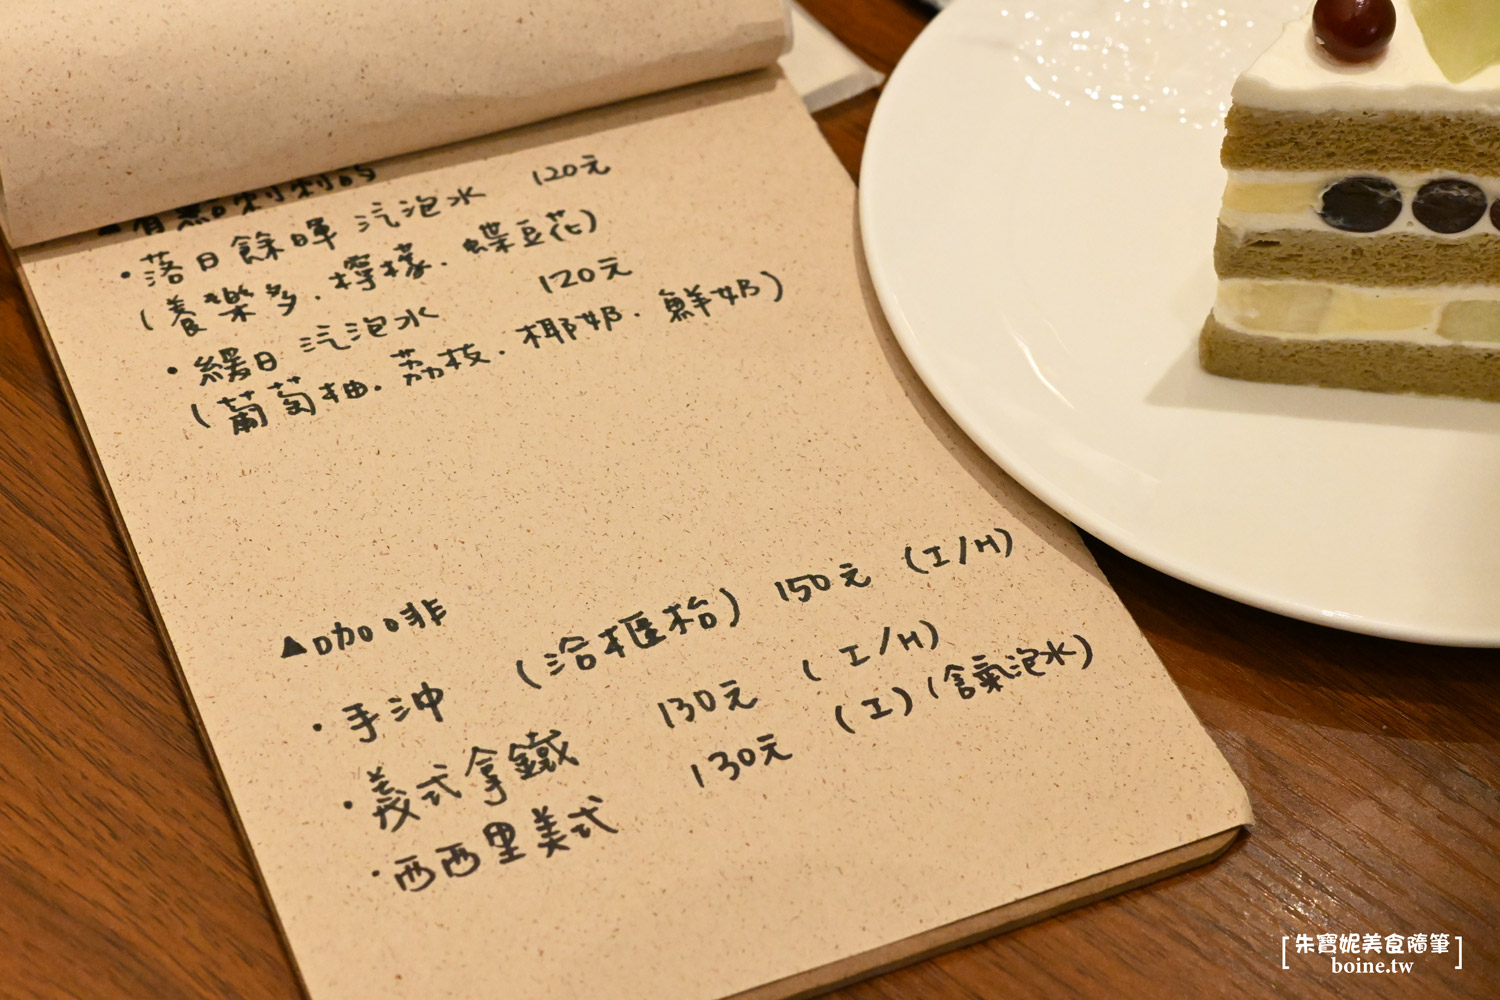 ▲有點刺刺的
・落日餘暉 汽泡水 120元
(養樂多．檸檬．蝶豆花)
・緩日 汽泡水 120元
(葡萄柚．荔枝．椰奶．鮮奶)
▲咖啡
・手沖 (洽櫃枱) 150元 (I/H)
・義式拿鐵 130元 (I/H)
・西西里美式 130元 (I) (含氣泡水)
[朱寶妮美食隨筆]
boine.tw